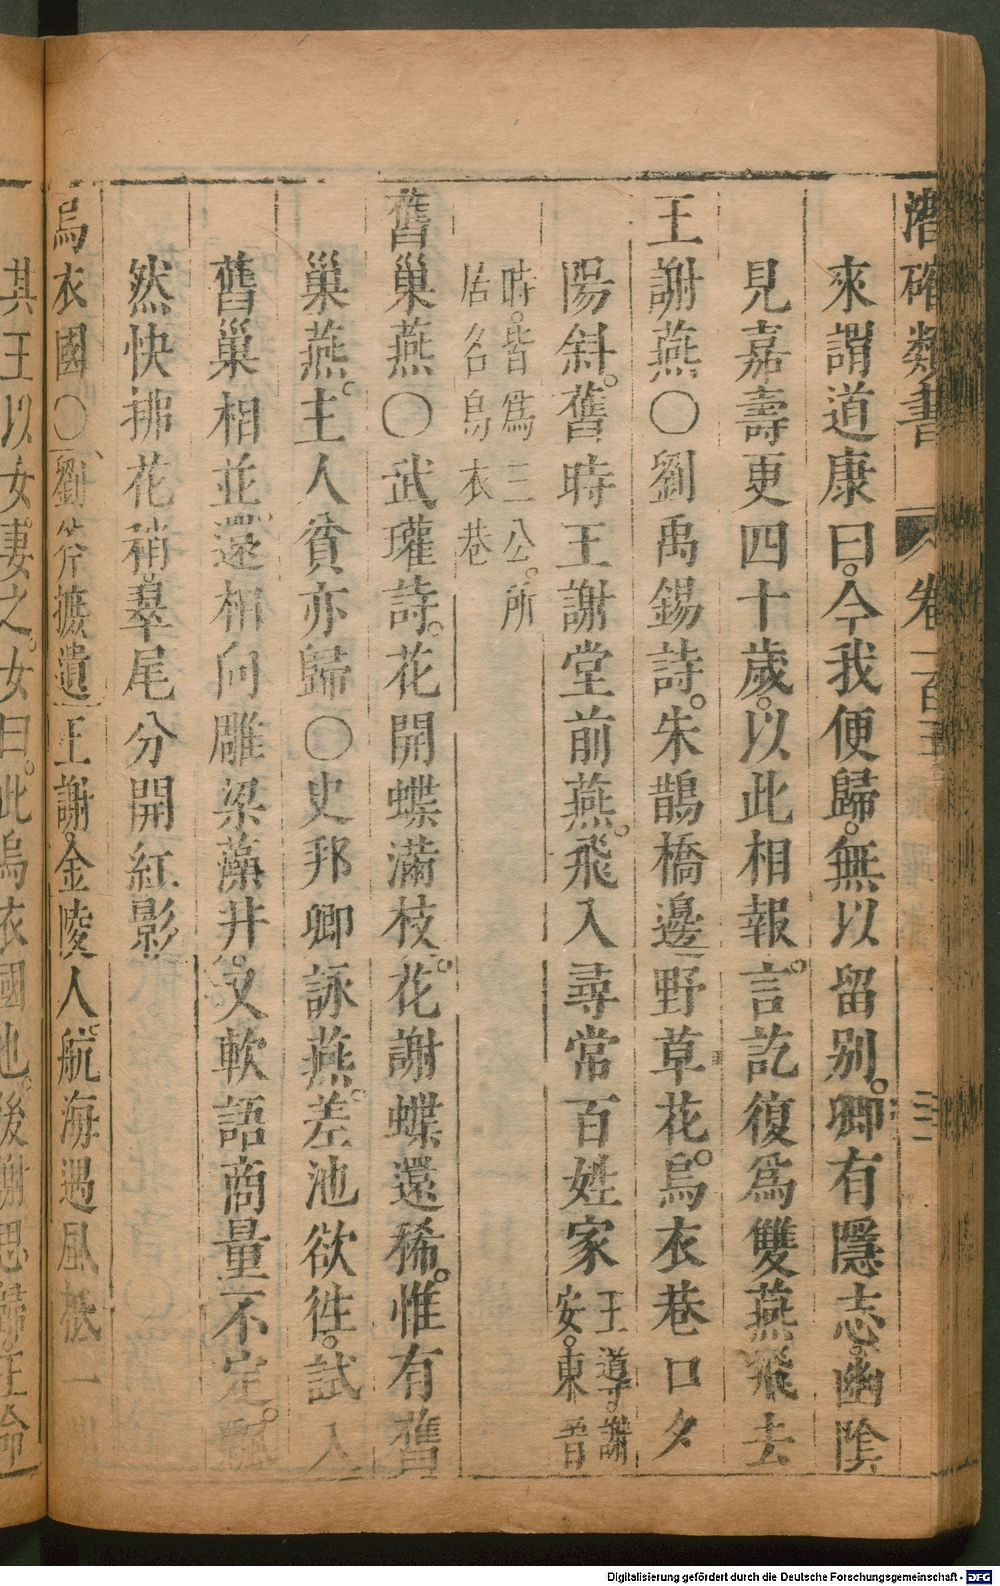 潛確類書 卷一百
來謂道康曰。今我便歸。無以留别。卿有隱志。幽陰
見嘉壽更四十歲。以此相報。言訖復爲雙燕飛去
王謝燕〇劉禹錫詩。朱鵲橋邊野草花。烏衣巷口夕
陽斜。舊時王謝堂前燕。飛入尋常百姓家 王導。謝
安。東晉
時。皆爲三公。所
居名烏衣巷
舊巢燕〇武瓘詩。花開蝶滿枝。花謝蝶還稀。惟有舊
巢燕。主人貧亦歸〇史邦卿詠燕。差池欲徃。試入
舊巢相並。還相向雕梁藻井。又軟語商量不定。飄
然快拂花稍。翠尾分開紅影
烏衣國〇劉斧摭遺王謝。金陵人。航海遇風抵一
其王以女妻之。女曰。此烏衣國也。後謝思歸。王命
Digitalisierung gefördert durch die Deutsche Forschungsgemeinschaft - DFG